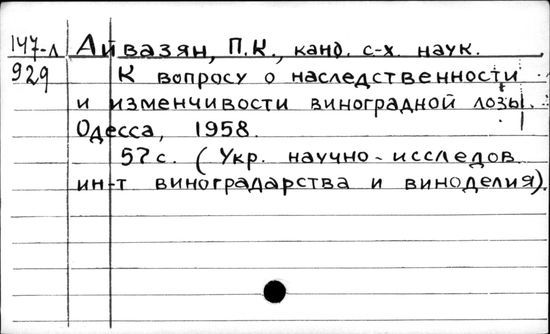 147-л Айвазян, П.К., канд. с-х. наук.
929 К вопросу о наследственности
и изменчивости виноградной лозы.
Одесса, 1958.
57 с. (Укр. научно-исследов
ин-т виноградарства и виноделия).